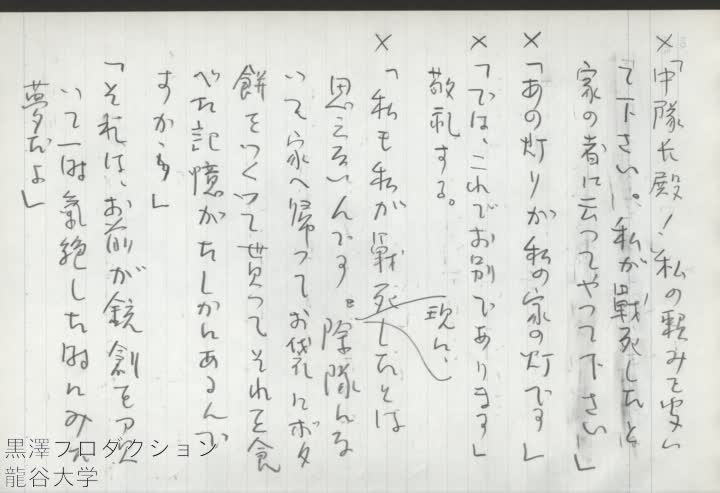 ×「中隊長殿!」私の頼みを聞い
て下さい。私が戦死したと
家の者に云つてやつて下さい」
×「あの灯りが私の家の灯です」
×「では、これでお別であります」
敬礼する。
×「私も私が戦死したとは
思えないんです。現に、除隊にな
いて家へ帰つてお袋にボタ
餅をつくつて貰つてそれを食
べた記憶がたしかにあるんで
すから」
「それは、お前が銃創を
いて一時氣絶した時にみた
夢だよ」
黒澤プロダクション
龍谷大学